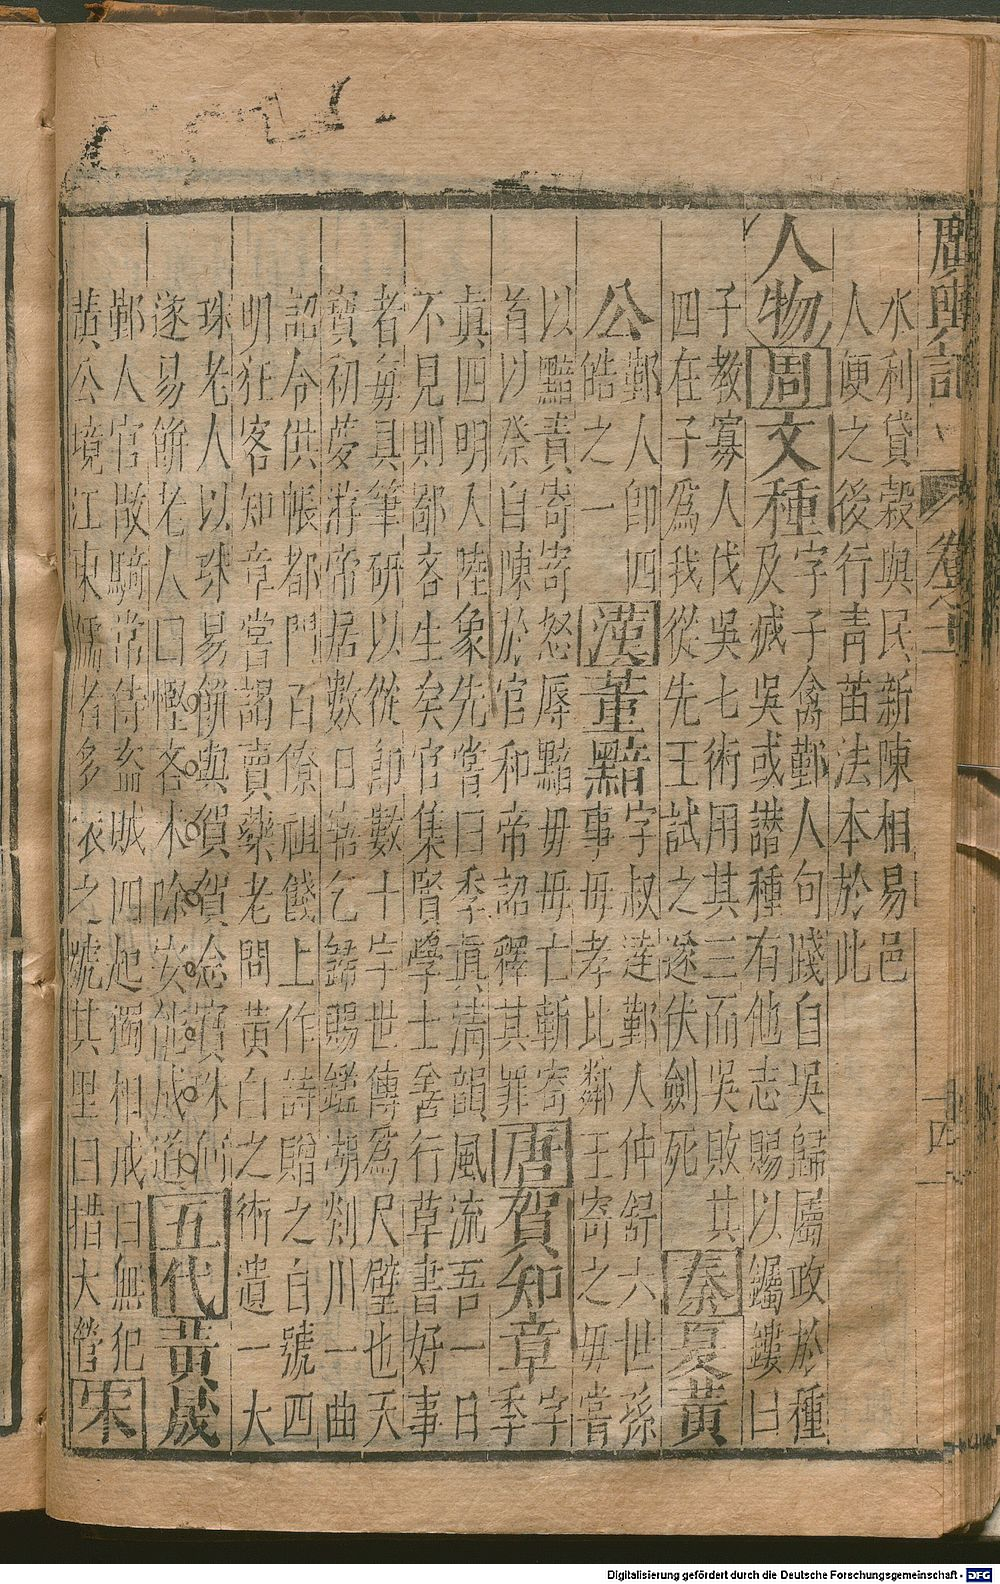 廣輿記 卷之十一 十四
水利貸穀與民新陳相易邑
人便之後行青苗法本於此
人物 周 文種 字子禽鄞人句踐自吳歸屬政於種
及滅吳或譖種有他志賜以钃鏤曰
子教寡人伐吳七術用其三而吳敗其
四在子爲我從先王試之遂伏劍死 秦 夏黃
公 鄞人即四
皓之一 漢 董黯 字叔達鄞人仲舒六世孫
事毋孝比鄰王寄之毋嘗
以黯責寄寄怒辱黯毋毋亡斬寄
首以祭自陳於官和帝詔釋其罪 唐 賀知章 字
季
真四明人陸象先嘗曰季真清韻風流吾一日
不見則鄙吝生矣官集賢學士善行草書好事
者每具筆研以從卽數十字世傳爲尺璧也天
寶初夢游帝居數日寤乞歸賜鑑湖剡川一曲
詔令供帳都門百僚祖餞上作詩贈之自號四
明狂客知章嘗謁賣藥老問黃白之術遺一大
珠老人以珠易餅與賀賀念寶珠何
遂易餅老人曰慳吝未除安能成道 五代 黃晟
鄞人官散騎常侍盜賊四起獨相戒曰無犯
黃公境江東儒者多依之號其里曰措大營 宋
Digitalisierung gefördert durch die Deutsche Forschungsgemeinschaft - DFG